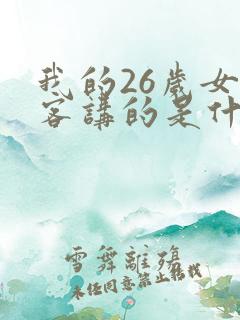 我的26歲女
客講的是什
雪舞離殤
未经同意禁止转载